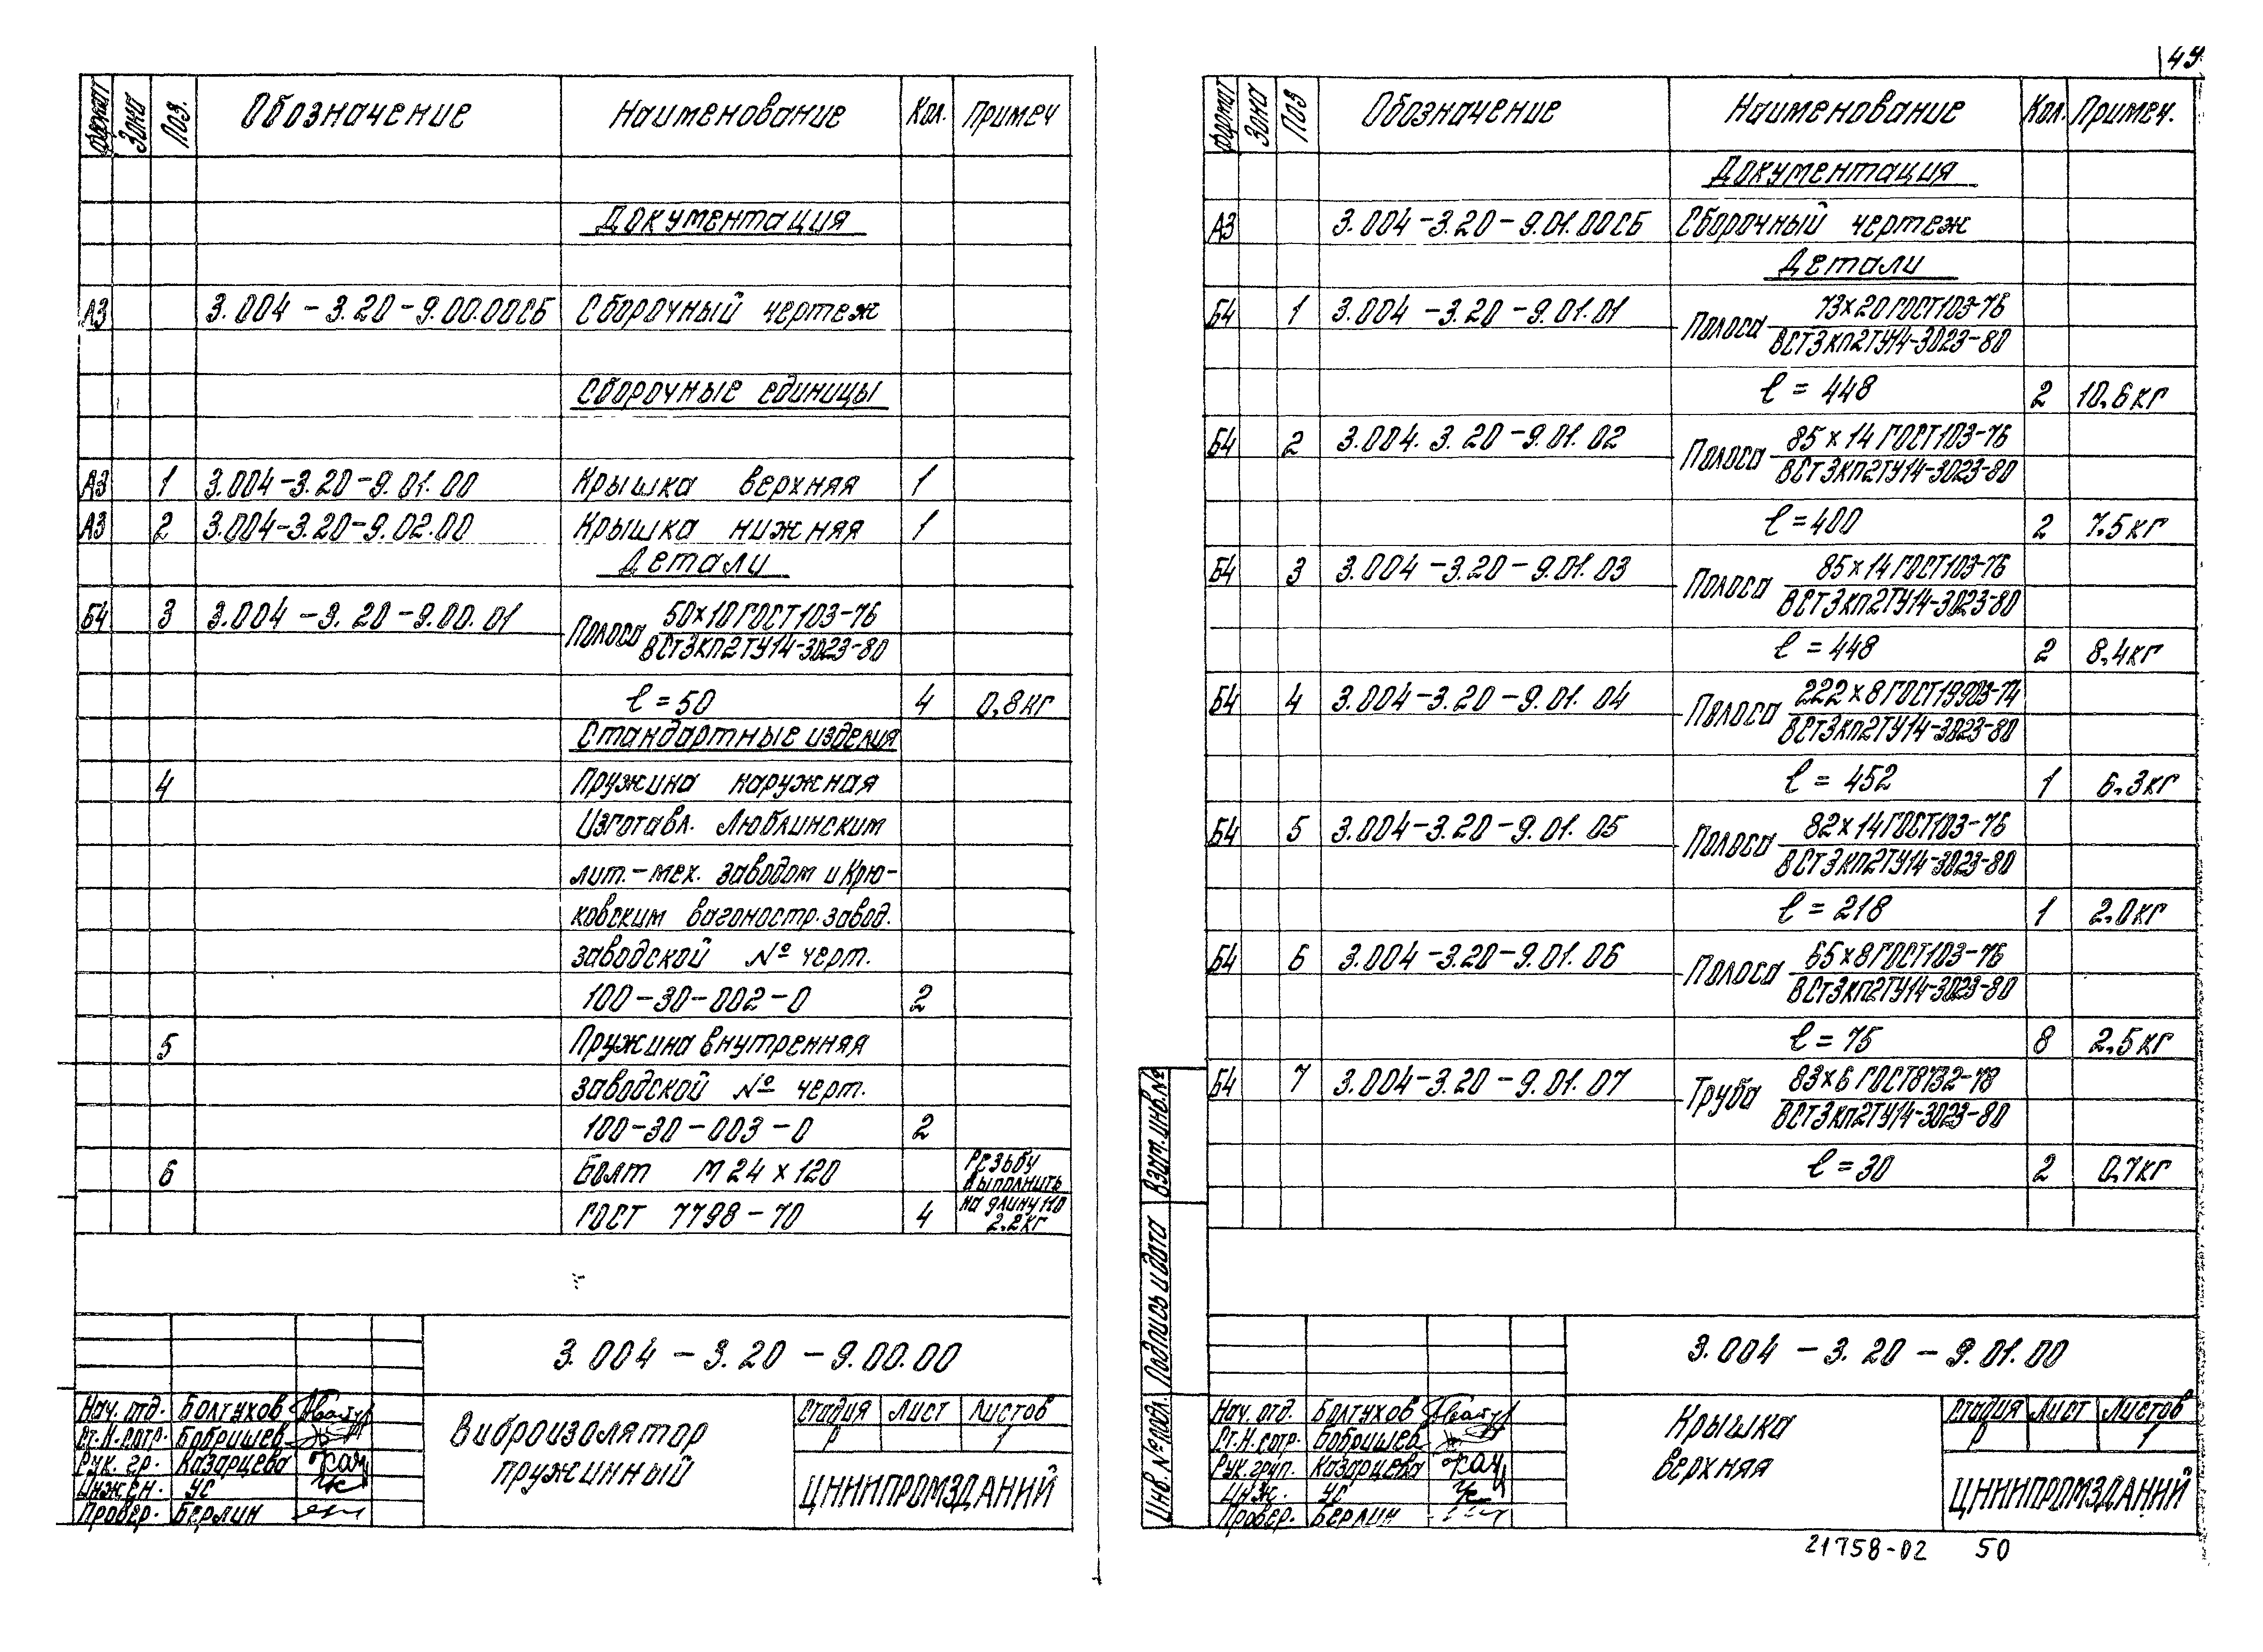 49
формат Зона Поз. Обозначение Наименование Кол. Примеч
Документация
А3 3.004-3.20-9.00.00СБ Сборочный чертеж
Сборочные единицы
А3 1 3.004-3.20-9.01.00 Крышка верхняя 1
А3 2 3.004-3.20-9.02.00 Крышка нижняя 1
Детали
Б4 3 3.004-3.20-9.00.01 Полоса 50х10 ГОСТ103-76
ВСт3кп2ТУ14-3023-80
ℓ=50 4 0,8кг
Стандартные изделия
4 Пружина наружная
Изготавл. Люблинским
лит.-мех. заводом и Крю-
ковским вагоностр. завод.
заводской № черт.
100-30-002-0 2
5 Пружина внутренняя
заводской № черт.
100-30-003-0 2
6 Болт М24х120 Резьбу
выполнить
ГОСТ 7798-70 4 на длину 110
2.2кг
3.004-3.20-9.00.00
Нач. отд. Болтухов
Ст.н.сотр. Бобришев
Рук. гр. Казарцева
Инжен. Ус
Провер. Берлин
Виброизолятор
пружинный
Стадия Лист Листов
Р 1
ЦНИИПРОМЗДАНИЙ
формат Зона Поз Обозначение Наименование Кол. Примеч.
Документация
А3 3.004-3.20-9.01.00СБ Сборочный чертеж
Детали
Б4 1 3.004-3.20-9.01.01 Полоса 73х20 ГОСТ103-76
ВСТ3кп2ТУ14-3023-80
ℓ=448 2 10.6кг
Б4 2 3.004.3.20-9.01.02 Полоса 85х14 ГОСТ103-76
ВСТ3кп2ТУ14-3023-80
ℓ=400 2 7.5кг
Б4 3 3.004-3.20-9.01.03 Полоса 85х14 ГОСТ103-76
ВСТ3кп2ТУ14-3023-80
ℓ=448 2 8,4кг
Б4 4 3.004-3.20-9.01.04 Полоса 222х8 ГОСТ19903-74
ВСт3кп2ТУ14-3023-80
ℓ=452 1 6.3кг
Б4 5 3.004-3.20-9.01.05 Полоса 82х14 ГОСТ103-76
ВСТ3кп2ТУ14-3023-80
ℓ=218 1 2.0кг
Б4 6 3.004-3.20-9.01.06 Полоса 65х8 ГОСТ103-76
ВСт3кп2ТУ14-3023-80
ℓ=75 8 2,5кг
Б4 7 3.004-3.20-9.01.07 Труба 83х6 ГОСТ8732-78
ВСТ3кп2ТУ14-3023-80
ℓ=30 2 0,7кг
Инв. № подл. Подпись и дата Взам. инв. №
3.004-3.20-9.01.00
Нач. отд. Болтухов
Ст.н.сотр. Бобришев
Рук. груп. Казарцева
Инж. Ус
Провер. Берлин
Крышка
верхняя
Стадия Лист Листов
Р 1
ЦНИИПРОМЗДАНИЙ
21758-02 50